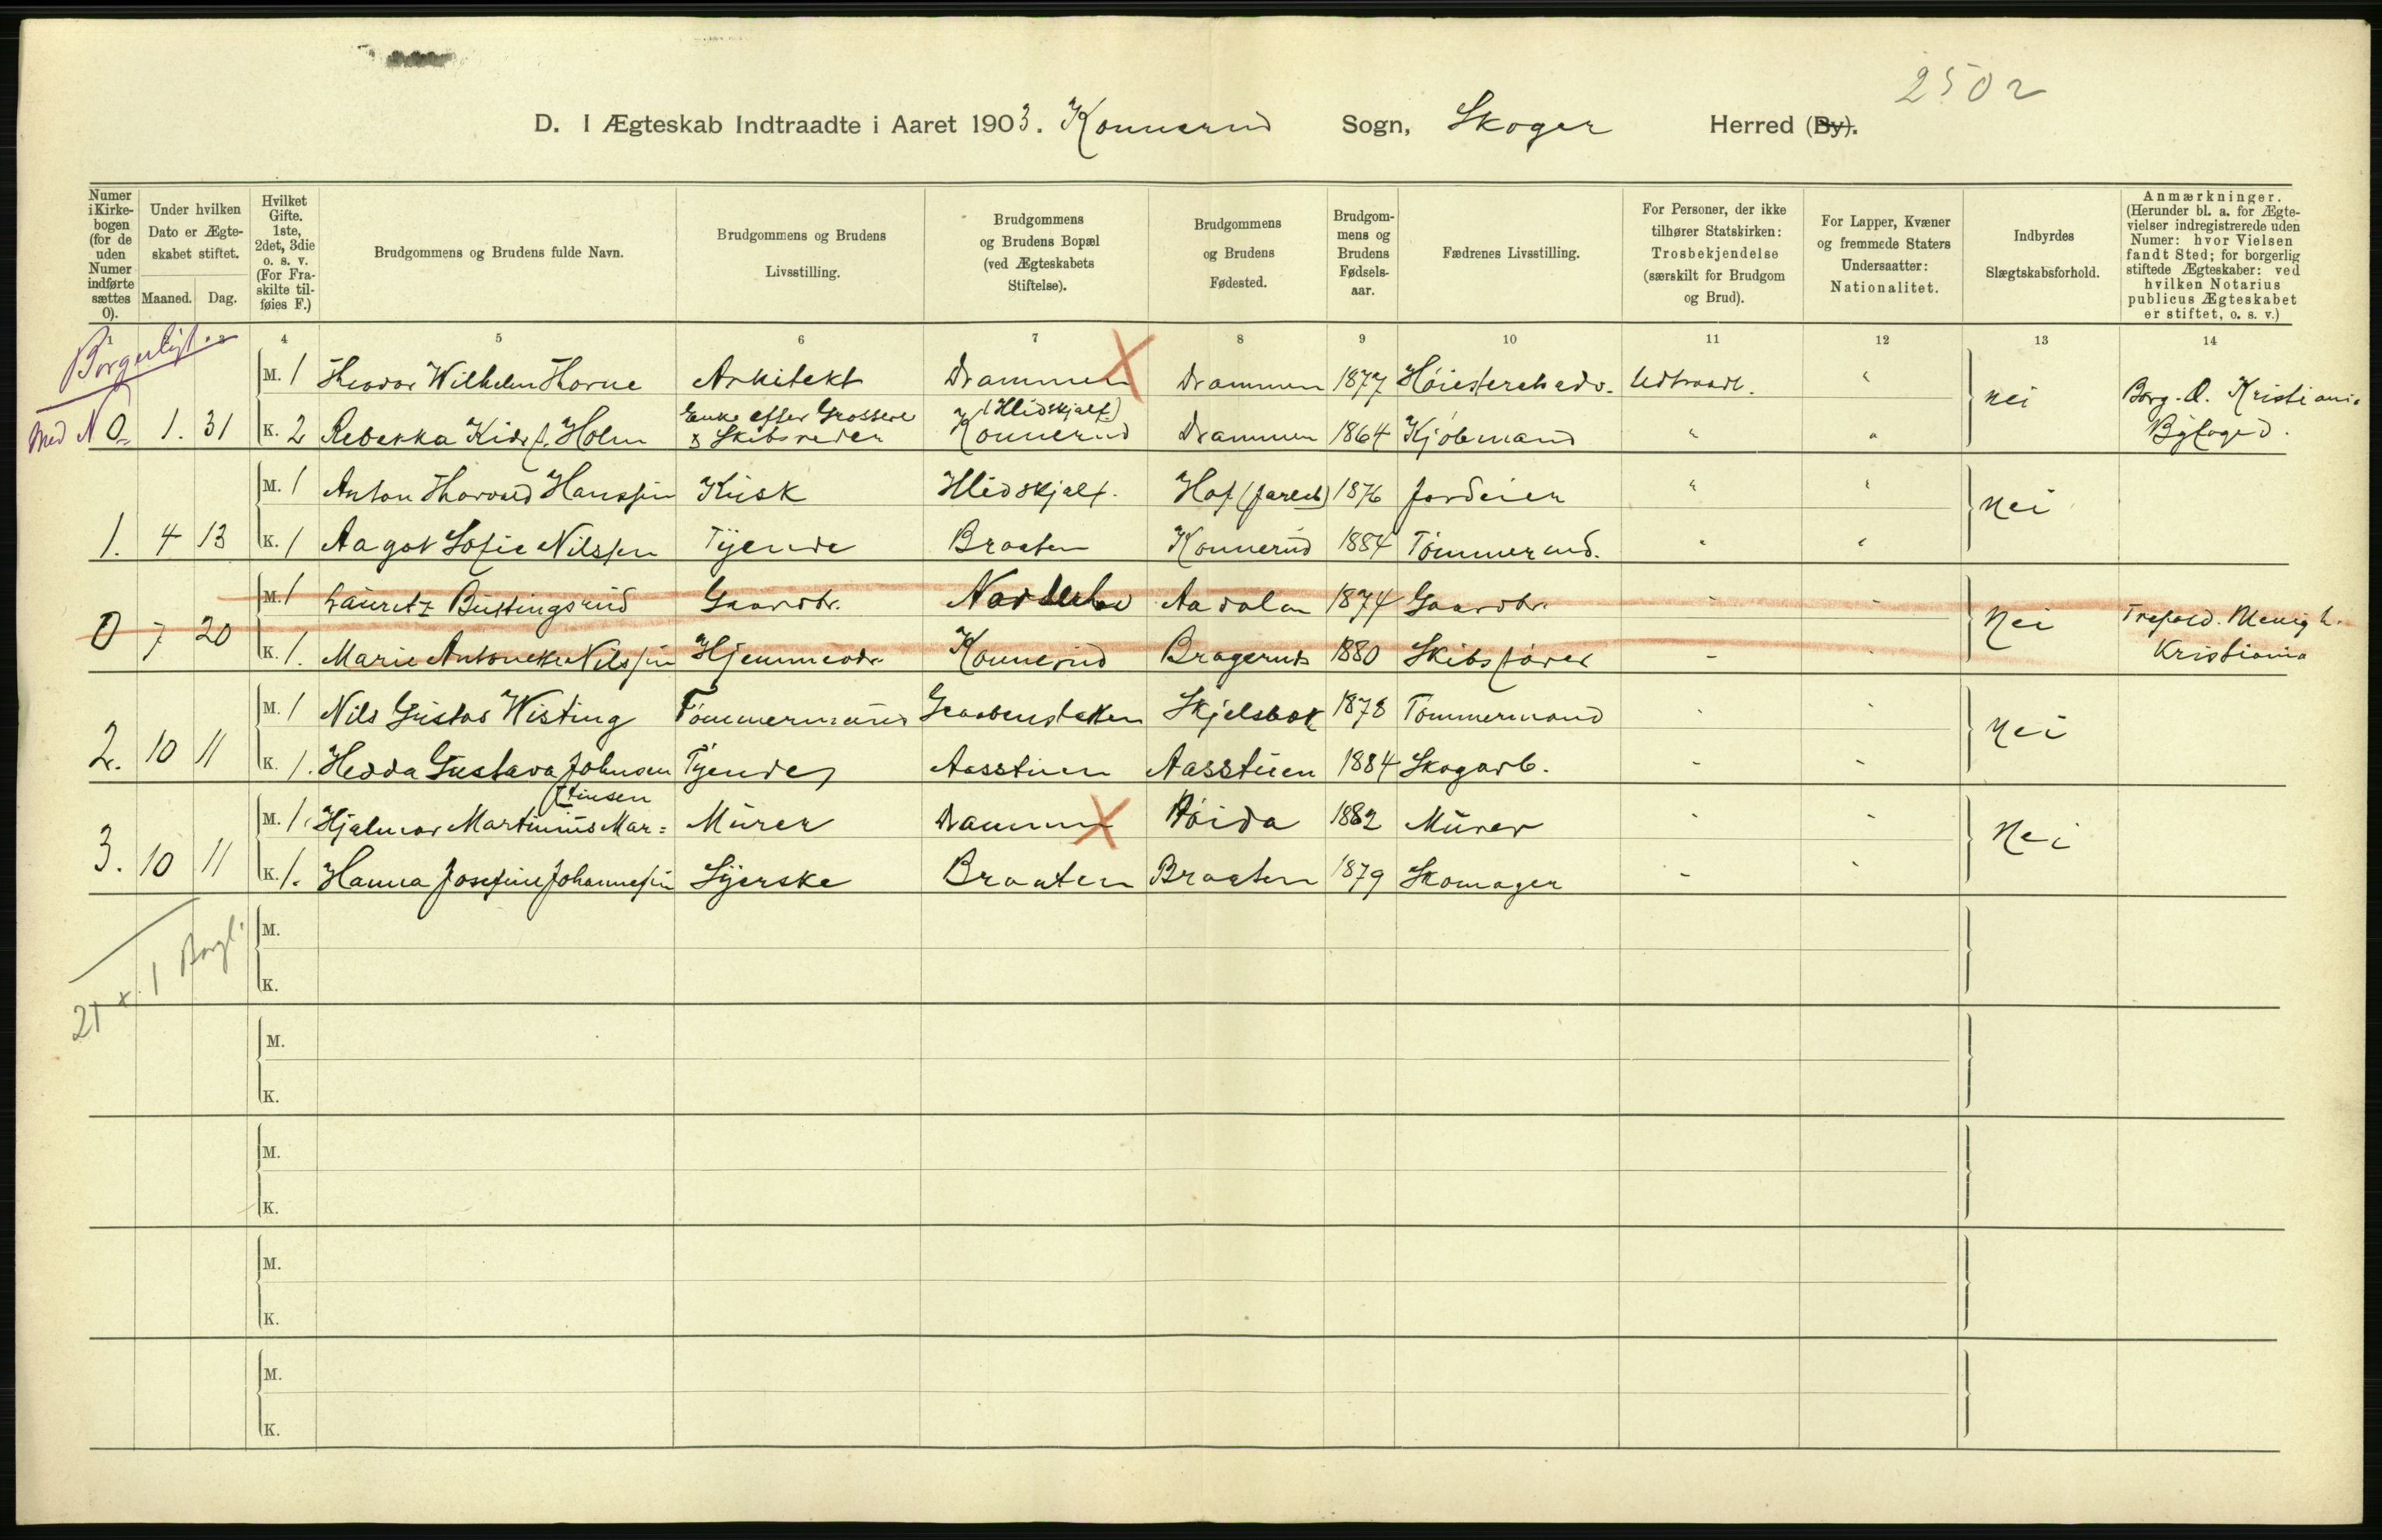 2502
D. I Ægteskab Indtraadte i Aaret 1903. Konnerud Sogn, Skoger Herred (By).
Numer i Kirkebogen (for de uden Numer indførte sættes 0). Under hvilken Dato er Ægteskabet stiftet. Maaned. Dag. Hvilket Gifte. 1ste, 2det, 3die o. s. v. (For Fraskilte tilføies F.) Brudgommens og Brudens fulde Navn. Brudgommens og Brudens Livsstilling. Brudgommens og Brudens Bopæl (ved Ægteskabets Stiftelse). Brudgommens og Brudens Fødested. Brudgommens og Brudens Fødselsaar. Fædrenes Livsstilling. For Personer, der ikke tilhører Statskirken: Trosbekjendelse (særskilt for Brudgom og Brud). For Lapper, Kvæner og fremmede Staters Undersaatter: Nationalitet. Indbyrdes Slægtskabsforhold. Anmærkninger. (Herunder bl. a. for Ægtevielser indregistrerede uden Numer: hvor Vielsen fandt Sted; for borgerlig stiftede Ægteskaber: ved hvilken Notarius publicus Ægteskabet er stiftet, o. s. v.)
1 4 5 6 7 8 9 10 11 12 13 14
Borgerligt
M. 1 Theodor Wilhelm Horne Arkitekt Drammen Drammen 1877 Høiesteretsadv. Udtraadt. " nei Borg. O. Kristiania
Enke efter Grosserer (Hlidskjalf)
Med N 0 1. 31 K. 2 Rebekka Kiær f. Holm & Skibsreder Konnerud Drammen 1864 Kjøbmand " " Byfoged.
M. 1 Anton Thorvald Hanssen Kusk Hlidskjalf. Hof (Jarlsb) 1876 Jordeier " " nei
1. 4 13 K. 1 Aagot Sofie Nilssen Tjende Braaten Konnerud 1884 Tømmermd. " "
M. 1 Lauritz Buttingsrud Gaardbr. Norderhov Aadalen 1874 Gaardbr. - - Nei Trefold. Menigh.
0 7 20 K. 1. Marie Antonette Nilssen Hjemmevær. Konnerud Bragernes 1880 Skibsfører - - Kristiania
M. 1 Nils Gustav Wisting Tømmermand Graabenstakken Skjelsbæk 1878 Tømmermand - - Nei
2. 10 11 K. 1. Hedda Gustava Johnsen Tjende Aasstuen Aasstuen 1884 Skogarb. - -
tinsen
M. 1. Hjalmar Martinius Mar= Murer Drammen Røida 1882 Murer - - Nei
3. 10 11 K. 1. Hanna Josefine Johannesen Syerske Braaten Braaten 1879 Skomager - -
M.
21 x 1 Borgl.
K.
M.
K.
M.
K.
M.
K.
M.
K.